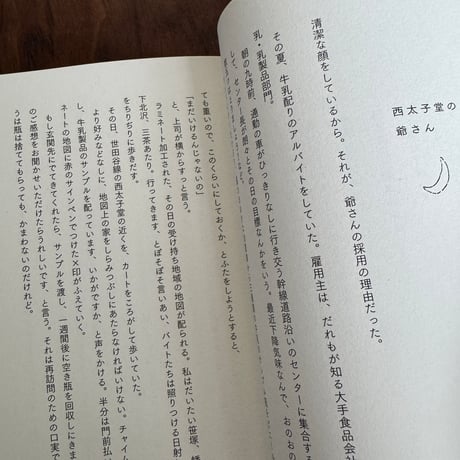 西太子堂の
爺さん
清潔な顔をしているから。それが、爺さんの採用の理由だった。
その夏、牛乳配りのアルバイトをしていた。雇用主は、だれもが知る大手食品会社
乳・乳製品部門。
朝の九時前、通勤の車がひっきりなしに行き交う幹線道路沿いのセンターに集合する
して、センター長が朗々とその日の目標なんかをいう。最近下降気味なんで、おのおの
ても重いので、このくらいにしておくか、とふたをしようとすると、
「まだいけるんじゃないの」
と、上司が横からすっと言う。
ラミネート加工された、その日の受け持ち地域の地図が配られる。私はだいたい笹塚、
下北沢、三茶あたり。行ってきます、とぼそぼそ言いあい、バイトたちは照りつける日射
をちりぢりに歩きだす。
その日、世田谷線の西太子堂の近くを、カートをころがして歩いていた。
より好みなどなしに、地図上の家をしらみつぶしにあたらなければいけない。チャイム
し、牛乳製品のサンプルを配っています、いかがですか、と声をかける。半分は門前払
ネートの地図に赤のサインペンでつけた×印がふえていく。
もし玄関先にでてきてくれたら、サンプルを渡し、一週間後に空き瓶を回収しにきま
のご感想をお聞かせいただけたらうれしいです、と言う。それは再訪問のための口実で
うは瓶は捨ててもらっても、かまわないのだけれど。